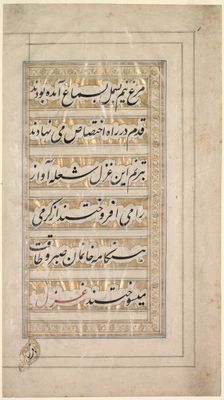 مرغ نیم بسمل بسماع آمده بودند
قدم در راه اختصاص می نهادند
بترنم این غزل شعله آواز
را می افروختند از گرمی
هنگامه خانمان صبر و طاقت
میسوختند غزل